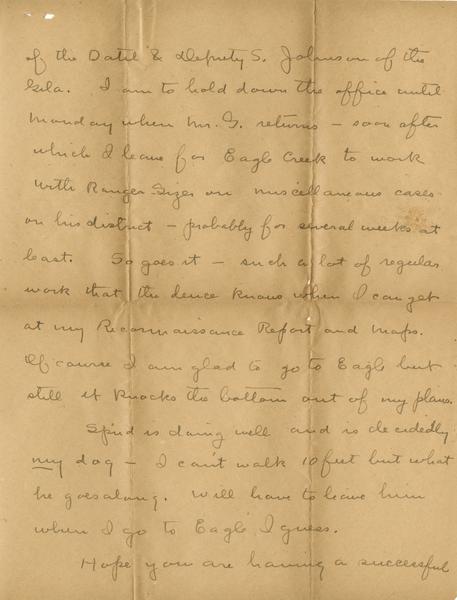 of the Datil & Deputy S. Johnson of the
Gila. I am to hold down the office until
Monday when Mr. G. returns – soon after
which I leave for Eagle Creek to work
with Ranger Sizer on miscellaneous cases
on his district – probably for several weeks at
least. So goes it – such a lot of regular
work that the deuce knows when I can get
at my Reconnaissance Report and maps.
Of course I am glad to go to Eagle but
still it knocks the bottom out of my plans.
Spud is doing well and is decidedly
my dog – I can't walk 10 feet but what
he goes along. Will have to leave him
when I go to Eagle I guess.
Hope you are having a successful